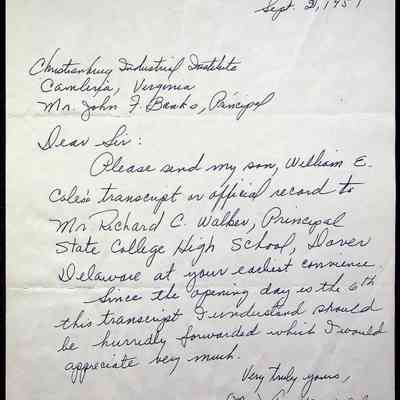 Sept. 2, 195
Christianburg Industrial Institute
Cambria, Virginia
Mr. John F. Banks, Principal
Dear Sir:
Please send my son, William E.
Coles transcript or official record to
Mr Richard C. Walker, Principal
State College High School, Dover
Delaware at your earliest convience.
Since the opening day is the 6th
this transcript I understand should
be hurridly forwarded which I would
appreciate very much.
Very truly yours,